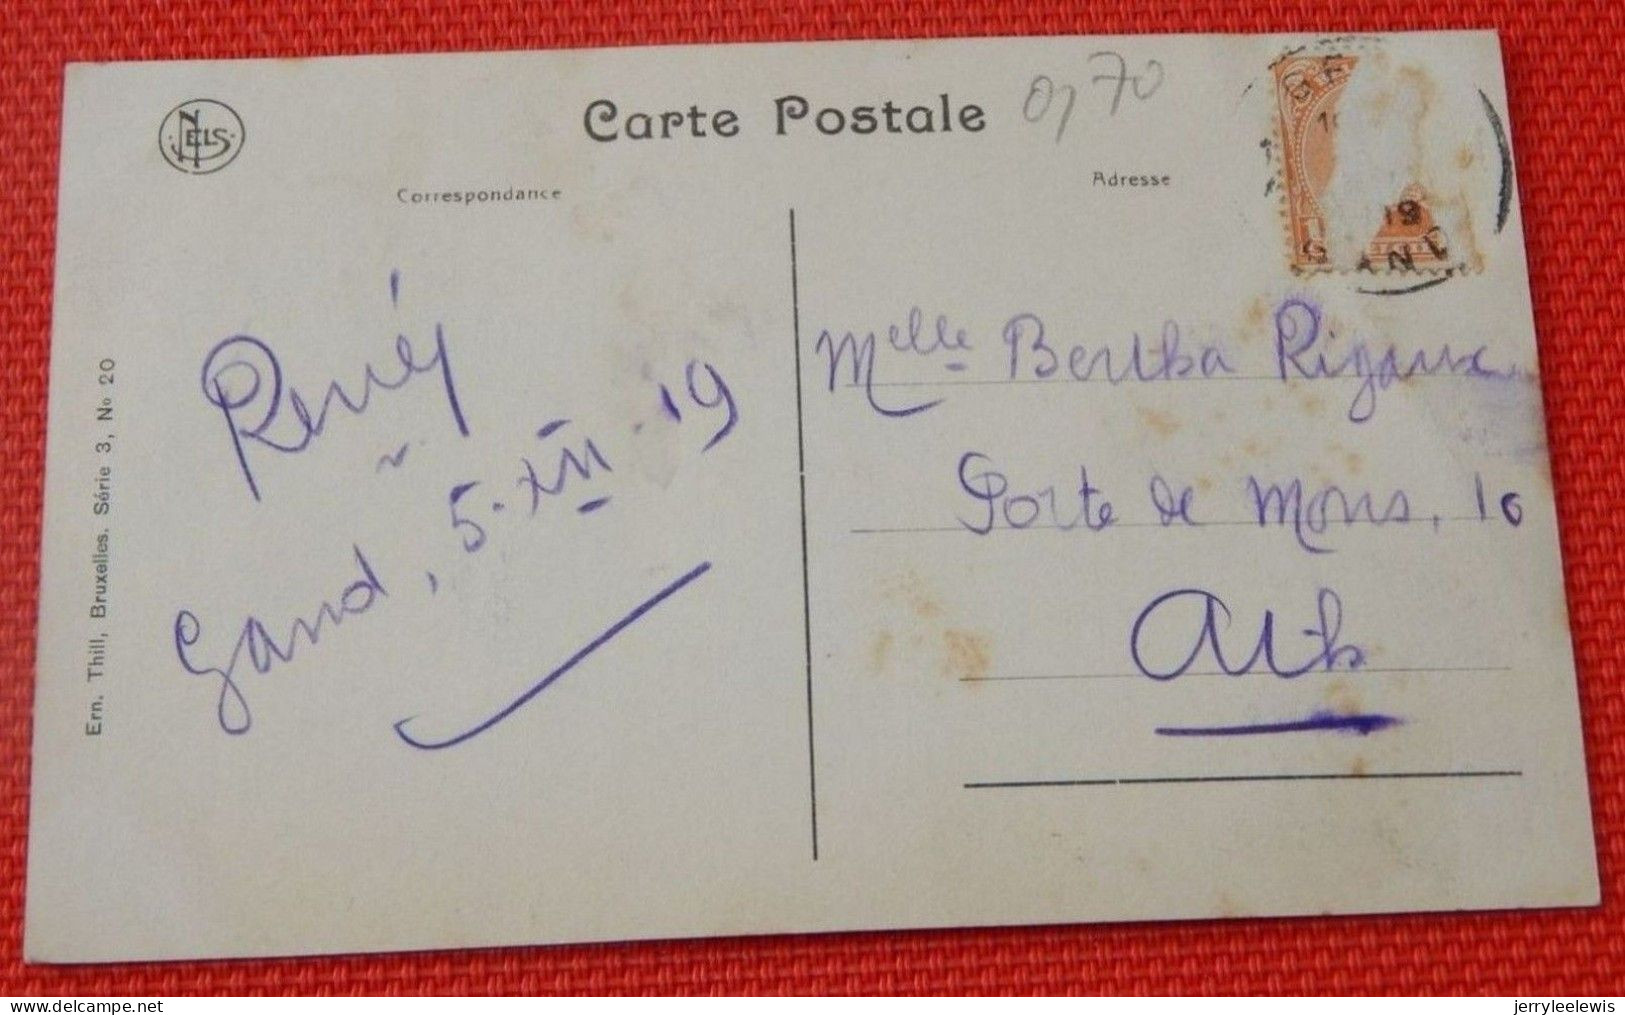 NELS
Carte Postale
0,70
Correspondance
Adresse
GE
19
GAND
René
Gand, 5-XII-19
Melle Bertha Rigaux
Porte de Mons, 10
Ath
Ern. Thill, Bruxelles. Série 3, No 20
www.delcampe.net
jerryleelewis